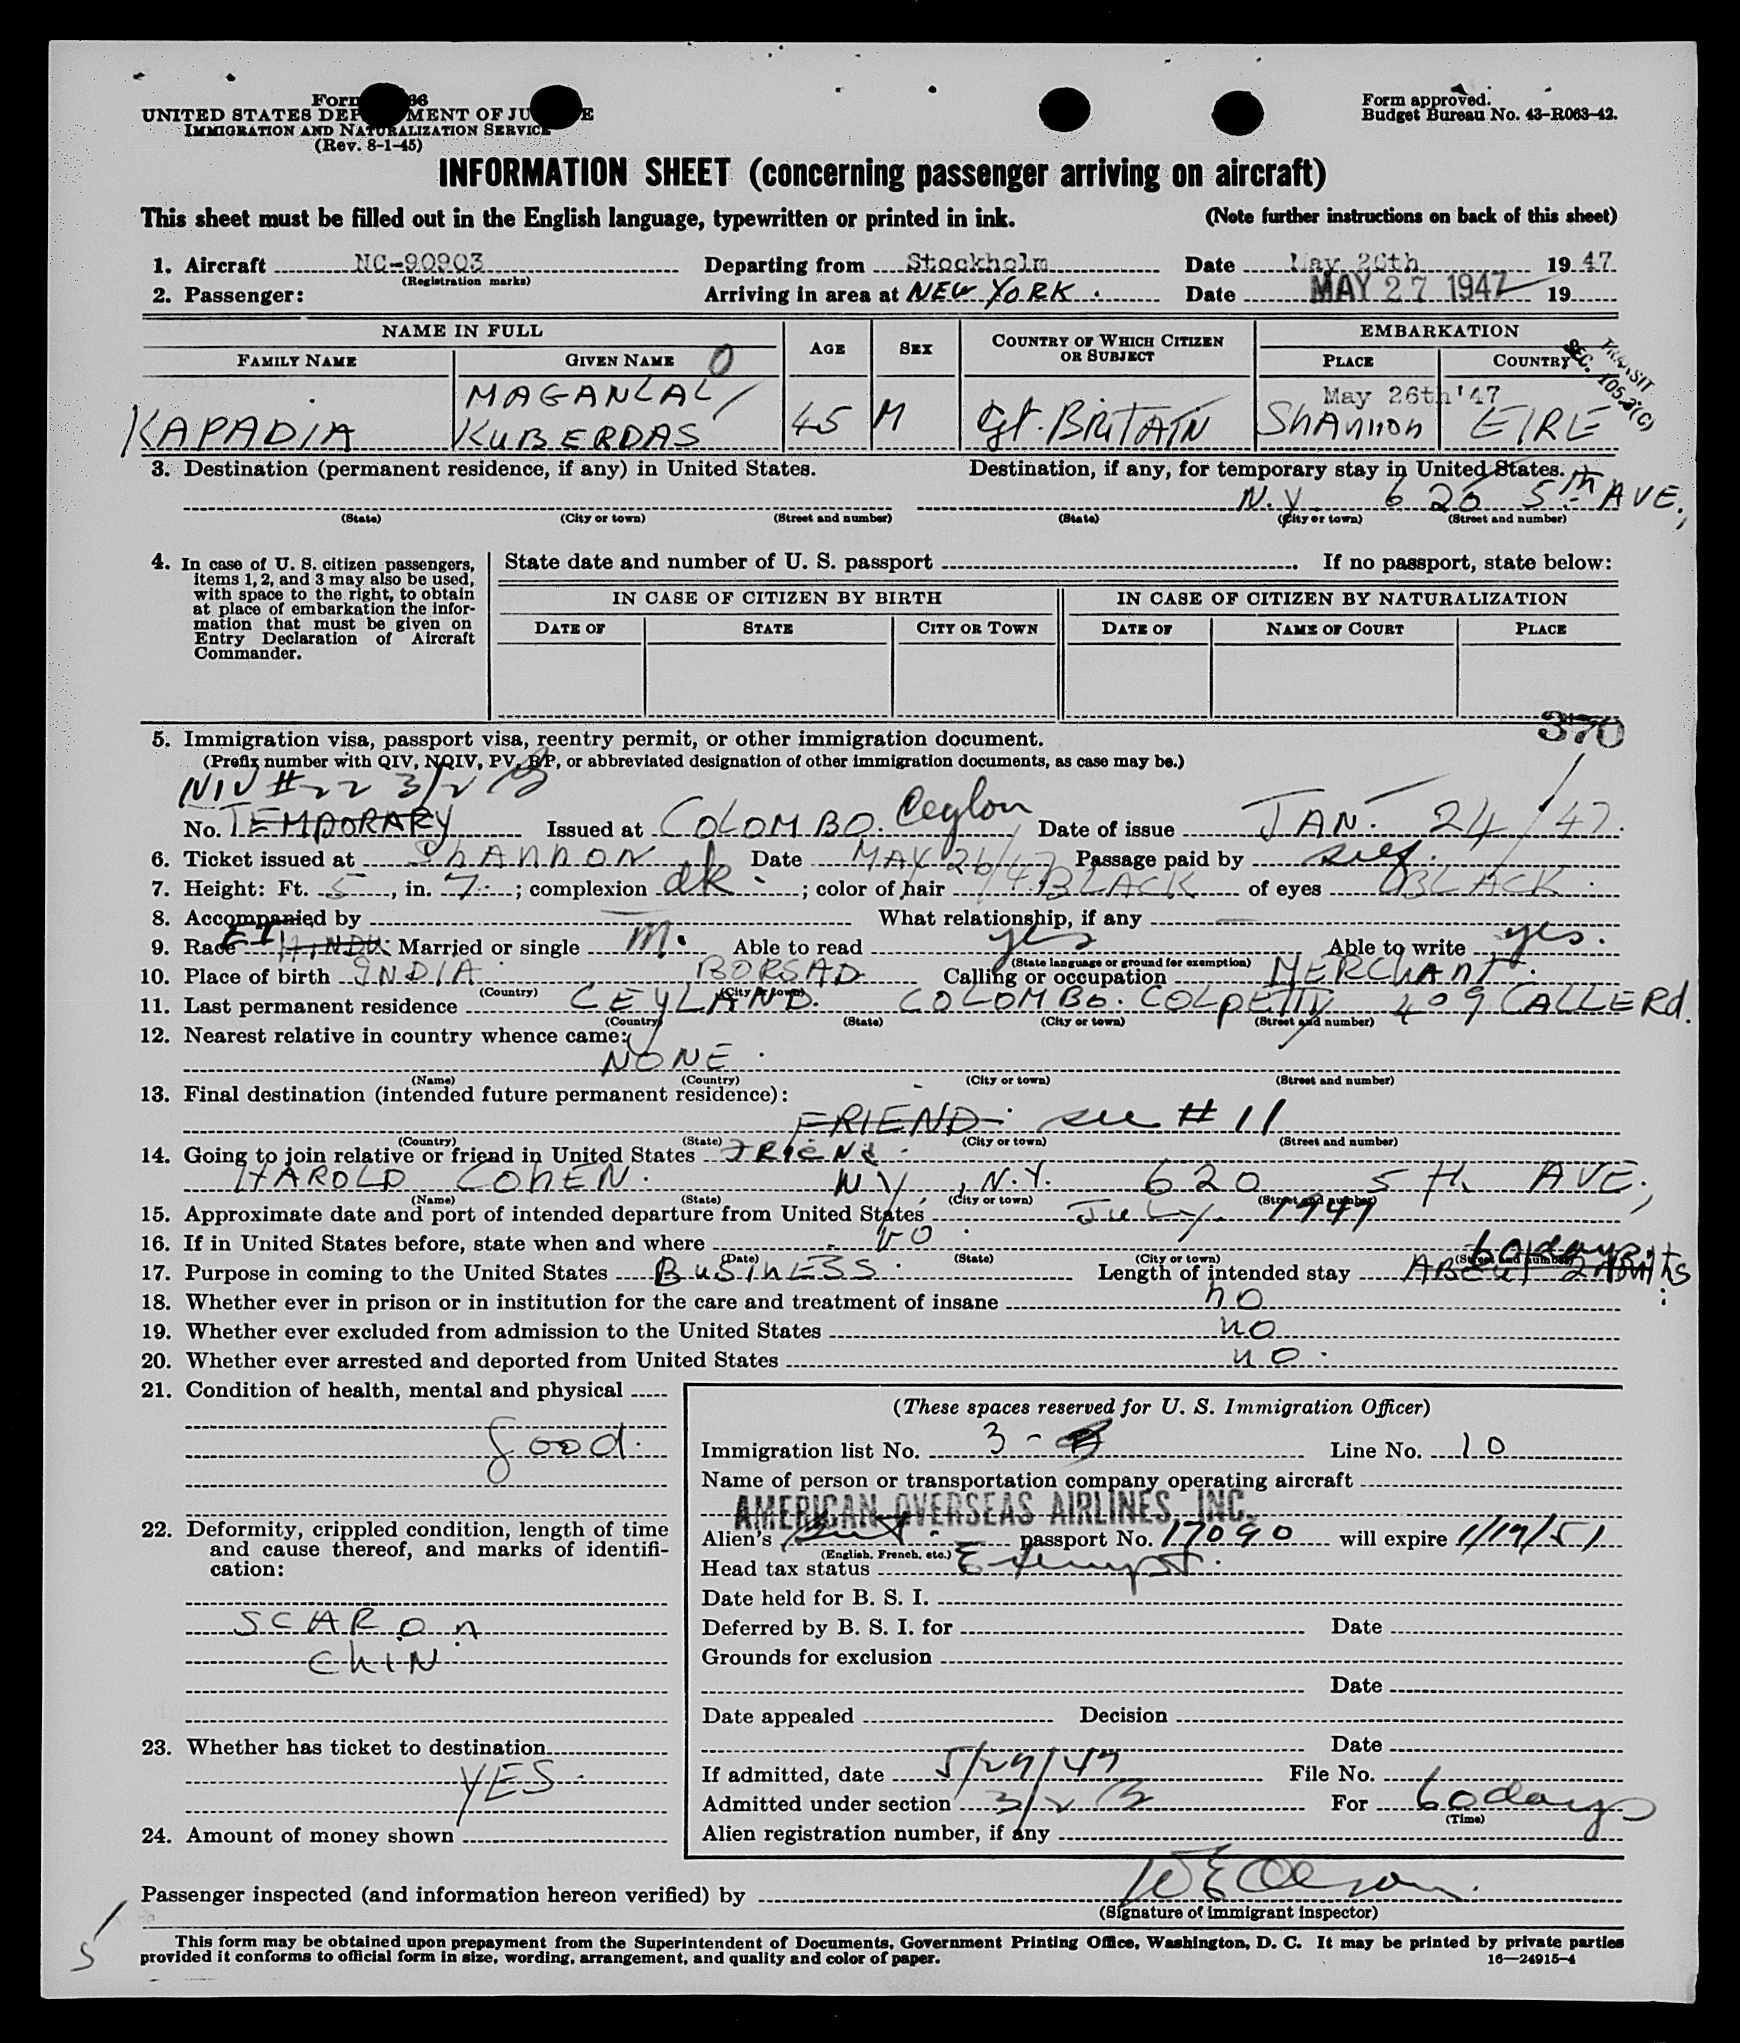 UNITED STATES DEP MENT OF JU E
IMMIGRATION AND NATURALIZATION SERVICE
(Rev. 8-1-45)
Form approved.
Budget Bureau No. 43-R063-42.
INFORMATION SHEET (concerning passenger arriving on aircraft)
This sheet must be filled out in the English language, typewritten or printed in ink. (Note further instructions on back of this sheet)
1. Aircraft NC-90903 Departing from Stockholm Date May 26th 1947
(Registration marks)
2. Passenger: Arriving in area at NEW YORK. Date MAY 27 1947 19
NAME IN FULL AGE SEX COUNTRY OF WHICH CITIZEN OR SUBJECT EMBARKATION
FAMILY NAME GIVEN NAME PLACE COUNTRY
TRANSIT
SEC. 105.3(C)
MAGANLAL May 26th '47
KAPADIA KUBERDAS 45 M Gt. BRITAIN SHANNON EIRE
3. Destination (permanent residence, if any) in United States. Destination, if any, for temporary stay in United States.
N.Y. 620 5th AVE.,
(State) (City or town) (Street and number) (State) (City or town) (Street and number)
4. In case of U. S. citizen passengers, items 1, 2, and 3 may also be used, with space to the right, to obtain at place of embarkation the information that must be given on Entry Declaration of Aircraft Commander.
State date and number of U. S. passport If no passport, state below:
IN CASE OF CITIZEN BY BIRTH IN CASE OF CITIZEN BY NATURALIZATION
DATE OF STATE CITY OR TOWN DATE OF NAME OF COURT PLACE
370
5. Immigration visa, passport visa, reentry permit, or other immigration document.
(Prefix number with QIV, NQIV, PV, RP, or abbreviated designation of other immigration documents, as case may be.)
NIV #22 3/2
No. TEMPORARY Issued at COLOMBO. Ceylon Date of issue JAN. 24/47.
6. Ticket issued at SHANNON Date MAY 26/47 Passage paid by self.
7. Height: Ft. 5, in. 7; complexion dk.; color of hair BLACK of eyes BLACK.
8. Accompanied by — What relationship, if any —
9. Race EI HINDU Married or single M. Able to read yes Able to write yes.
(State language or ground for exemption)
10. Place of birth INDIA BORSAD Calling or occupation MERCHANT.
(Country) (City or town)
11. Last permanent residence CEYLAND. COLOMBO. COLPETTY 409 GALLE Rd.
(Country) (State) (City or town) (Street and number)
12. Nearest relative in country whence came:
NONE.
(Name) (Country) (City or town) (Street and number)
13. Final destination (intended future permanent residence):
FRIEND. see #11
(Country) (State) (City or town) (Street and number)
14. Going to join relative or friend in United States FRIEND.
HAROLD COHEN. NY, N.Y. 620 5th AVE.,
(Name) (State) (City or town) (Street and number)
15. Approximate date and port of intended departure from United States July. 1947
16. If in United States before, state when and where NO.
(Date) (State) (City or town) (Street and number)
60 days
17. Purpose in coming to the United States BUSINESS. Length of intended stay ABOUT 2 Months
18. Whether ever in prison or in institution for the care and treatment of insane no
19. Whether ever excluded from admission to the United States no
20. Whether ever arrested and deported from United States no.
21. Condition of health, mental and physical
good.
22. Deformity, crippled condition, length of time and cause thereof, and marks of identification:
SCAR on
CHIN
23. Whether has ticket to destination
YES.
24. Amount of money shown
(These spaces reserved for U. S. Immigration Officer)
Immigration list No. 3- Line No. 10
Name of person or transportation company operating aircraft
AMERICAN OVERSEAS AIRLINES, INC.
Alien's Brit. passport No. 17090 will expire 1/19/51
(English, French, etc.)
Head tax status Exempt.
Date held for B. S. I.
Deferred by B. S. I. for Date
Grounds for exclusion
Date
Date appealed Decision
Date
If admitted, date 5/27/47 File No.
Admitted under section 3/2 B For 60 days
(Time)
Alien registration number, if any
Passenger inspected (and information hereon verified) by W E Olson.
(Signature of immigrant inspector)
This form may be obtained upon prepayment from the Superintendent of Documents, Government Printing Office, Washington, D. C. It may be printed by private parties
provided it conforms to official form in size, wording, arrangement, and quality and color of paper. 16—24915-4